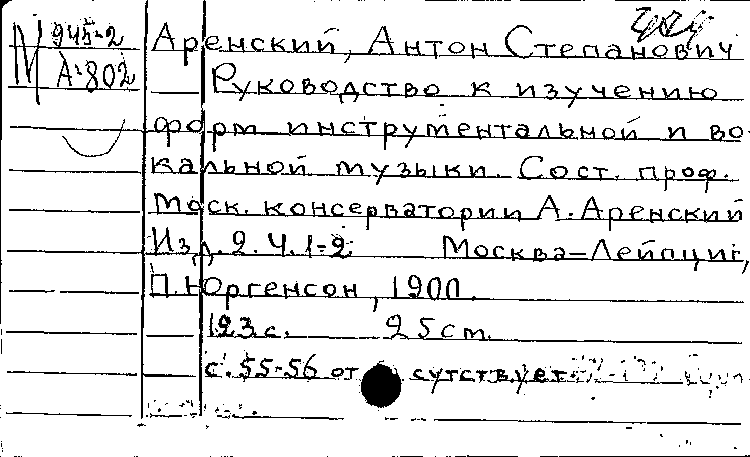 М 945-2
А-802
Аренский, Антон Степанович
Руководство к изучению
форм инструментальной и во-
кальной музыки. Сост. проф.
Моск. консерватории А. Аренский
Изд. 2. Ч. 1-2 Москва-Лейпциг,
П. Юргенсон, 1900.
123 с. 25 cm.
с. 55-56 отсутствует